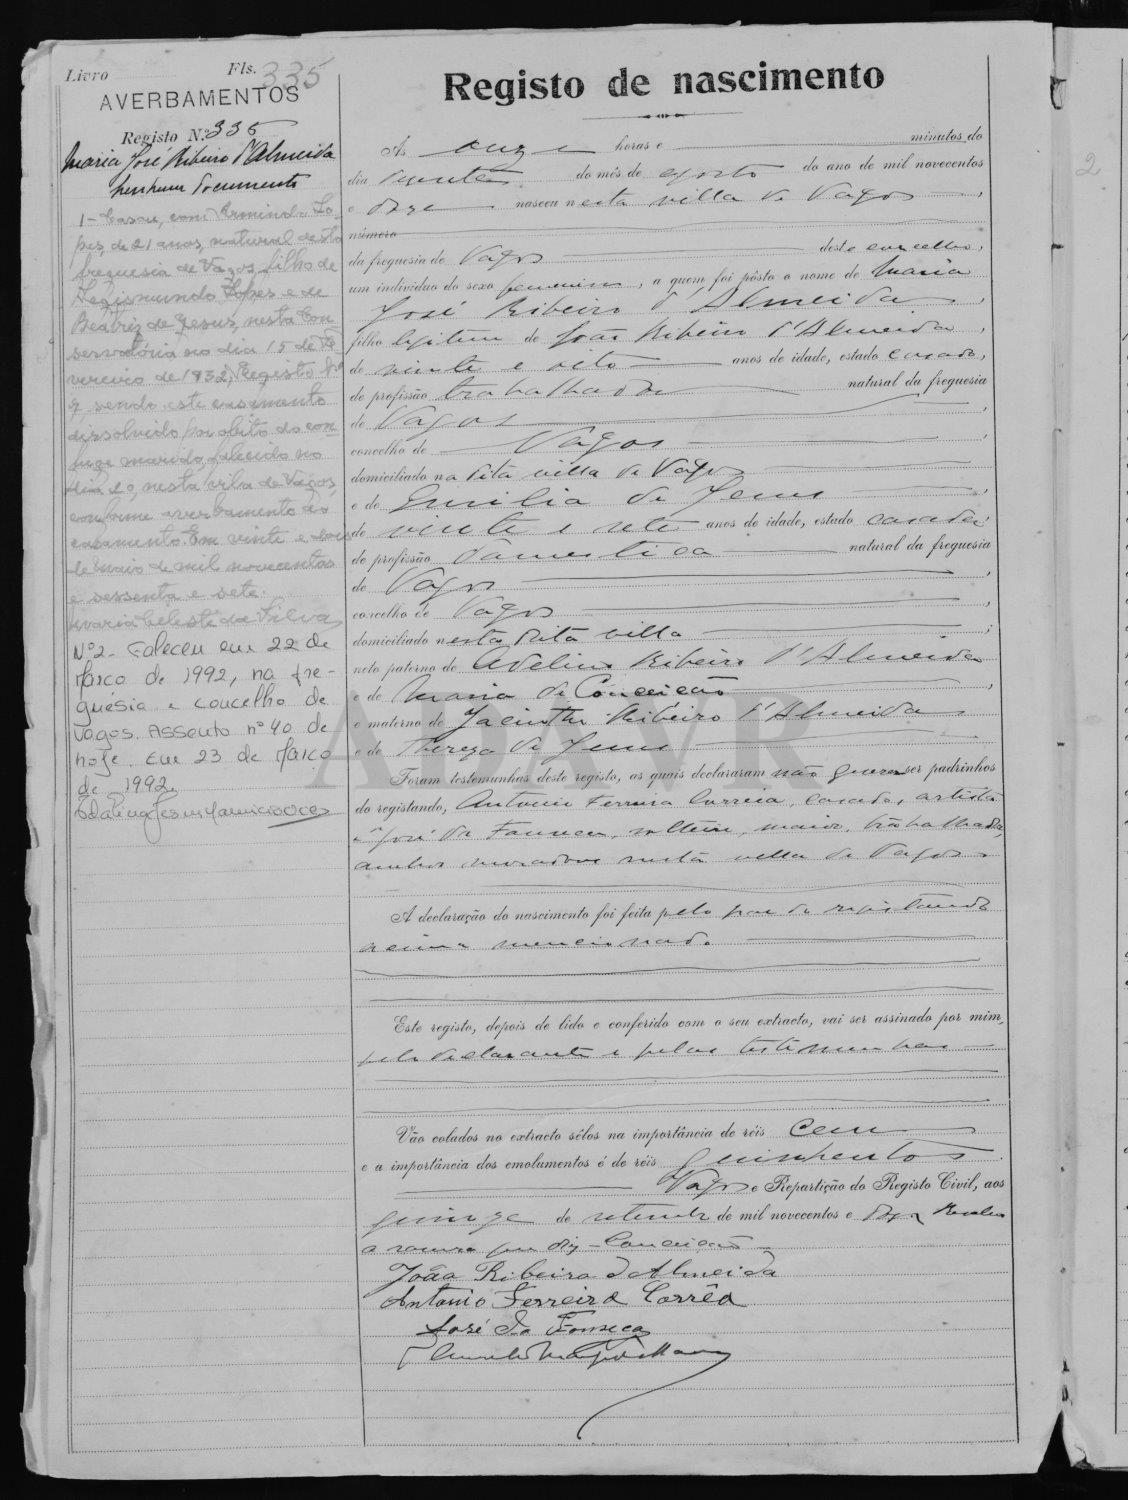 Livro Fls. 335
AVERBAMENTOS
Registo N.º 335
Maria José Ribeiro d'Almeida
nenhum documento
1-Casou, com Armindo Lo-
pes, de 21 anos, natural desta
freguesia de Vagos, filho de
Segismundo Lopes e de
Beatriz de Jesus, nesta Con-
servatória no dia 15 de Fe-
vereiro de 1932, Registo Nº
9 sendo este casamento
dissolvido por obito do con-
juge marido, falecido no
dia 20, nesta vila de Vagos,
conforme averbamento ao
casamento. Em vinte e dois
de maio de mil novecentos
e sessenta e sete.
Maria Celeste da Silva
Nº2- Faleceu em 22 de
Março de 1992, na fre-
guesia e concelho de
Vagos. Assento nº 40 de
hoje. Em 23 de Março
de 1992.
Registo de nascimento
Ás onze horas e minutos do
dia vinte do mês de agosto do ano de mil novecentos
e doze nasceu nesta villa de Vagos,
número
da freguesia de Vagos deste concelho,
um individuo do sexo femenino, a quem foi pôsto o nome de Maria
José Ribeiro d'Almeida,
filho legitimo de João Ribeiro d'Almeida,
de vinte e oito anos de idade, estado casado,
de profissão trabalhador natural da freguesia
de Vagos,
concelho de Vagos
domiciliado na dita villa de Vagos
e de Emilia de Jesus,
de vinte e sete anos de idade, estado casada,
de profissão domestica natural da freguesia
de Vagos,
concelho de Vagos
domiciliado nesta dita villa;
neto paterno de Avelino Ribeiro d'Almeida
e de Maria da Conceição,
e materno de Jacintho Ribeiro d'Almeida
e de Thereza de Jesus
Foram testemunhas deste registo, as quais declararam não querer ser padrinhos
do registando, Antonio Ferreira Correia, casado, artista
e José da Fonseca, solteiro, maior, trabalhador,
ambos moradores nesta villa de Vagos
A declaração do nascimento foi feita pelo pae do registando
acima mencionado.
Este registo, depois de lido e conferido com o seu extracto, vai ser assinado por mim,
pelo declarante e pelas testemunhas
Vão colados no extracto sêlos na importância de réis cem
e a importância dos emolumentos é de réis quinhentos
Vagos e Repartição do Registo Civil, aos
quinze de setembro de mil novecentos e doze. Resalvo
a rasura que diz - Conceição
João Ribeiro d'Almeida
Antonio Ferreira Corrêa
José da Fonseca
ADAVR
2